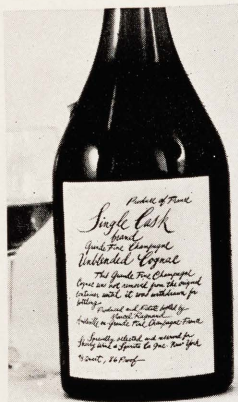 Produce of France
Single Cask
brand
Grande Fine Champagne
Unblended Cognac
This Grande Fine Champagne
Cognac was not removed from the original
container until it was withdrawn for
bottling.
Produced and Estate bottled by
Marcel Ragnaud
Ambleville en grande Fine Champagne France
Specially selected and reserved for
Sherry Wine & Spirits Co Inc. New York
4/5 Quart, 86 Proof